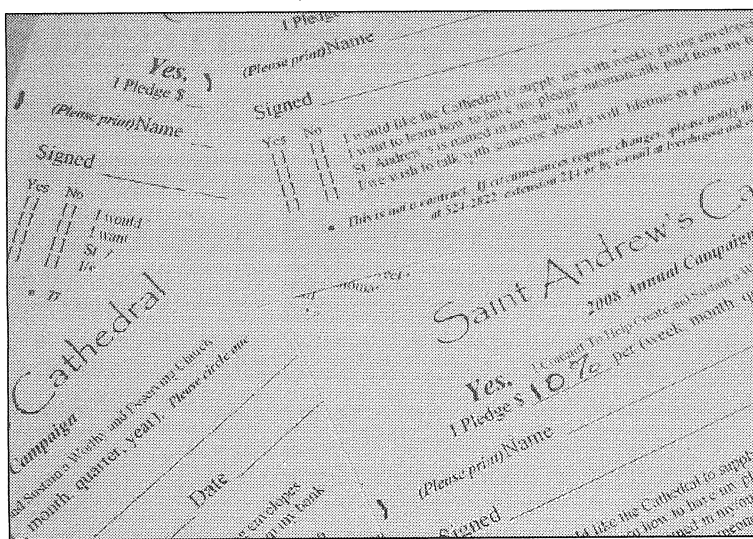 I Pledge
(Please print)Name
Signed
Yes No
[ ] [ ] I would like the Cathedral to supply me with weekly giving envelopes
[ ] [ ] I want to learn how to have my pledge automatically paid from my
[ ] [ ] St. Andrew's is named in my/our will
[ ] [ ] I/we wish to talk with someone about a will, lifetime or planned
* This is not a contract. If circumstances require changes, please notify
at 524-2822, extension 214 or by e-mail at
Yes,
I Pledge $
(Please print)Name
Signed
Yes No
[ ] [ ] I would
[ ] [ ] I want
[ ] [ ] St
[ ] [ ] I/
*
Cathedral
Campaign
and Sustain a Worthy and Deserving Church
month, quarter, year). Please circle one
Date
envelopes
my bank
Saint Andrew's Ca
2008 Annual Campaign
I Commit To Help Create and Sustain a
Yes,
I Pledge $ 10% per (week, month, qu
(Please print)Name
Signed
ld like the Cathedral to suppl
how to have my pl